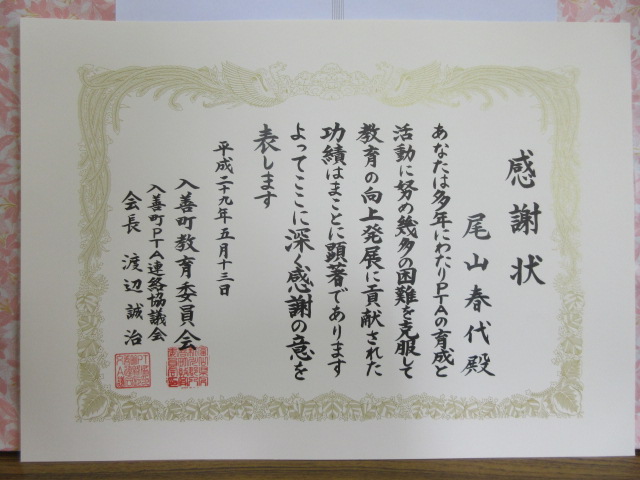 感謝状
尾山春代殿
あなたは多年にわたりPTAの育成と
活動に努め幾多の困難を克服して
教育の向上発展に貢献された
功績はまことに顕著であります
よってここに深く感謝の意を
表します
平成二十九年五月十三日
入善町教育委員会
入善町PTA連絡協議会
会長 渡辺誠治